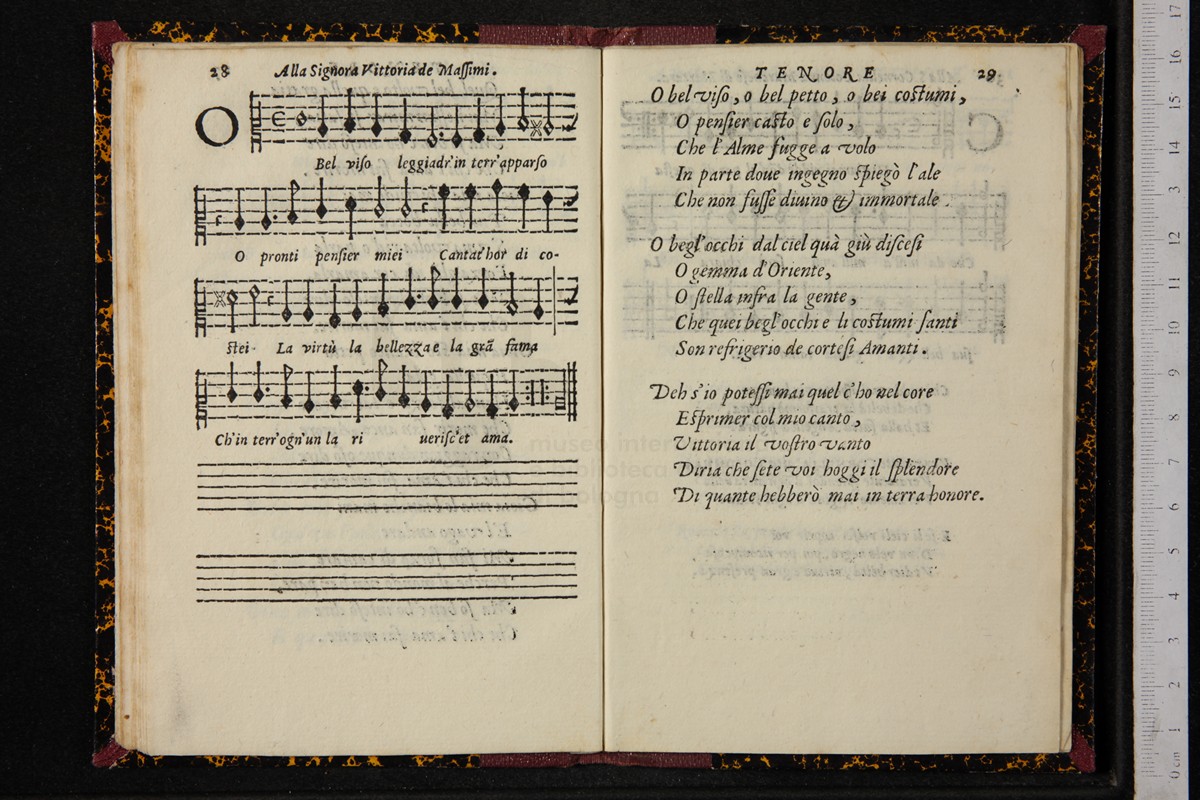 28
Alla Signora Vittoria de Maſſimi.
O
Bel viſo leggiadr'in terr'apparſo
O pronti penſier miei Cantat'hor di co-
ſtei. La virtù la bellezza e la grã fama
Ch'in terr'ogn'un la ri ueriſc'et ama.
TENORE
29
O bel viſo, o bel petto, o bei coſtumi,
O penſier caſto e ſolo,
Che l'Alme fugge a volo
In parte doue ingegno ſpiegò l'ale
Che non fuſſe diuino & immortale.
O begl'occhi dal ciel quà giù diſceſi
O gemma d'Oriente,
O ſtella infra la gente,
Che quei begl'occhi e li coſtumi ſanti
Son refrigerio de corteſi Amanti.
Deh s'io poteſſi mai quel c'ho nel core
Eſprimer col mio canto,
Vittoria il voſtro vanto
Diria che ſete voi hoggi il ſplendore
Di quante hebberò mai in terra honore.
museo inter
biblioteca
bologna
0 cm 1 2 3 4 5 6 7 8 9 10 11 12 13 14 15 16 17